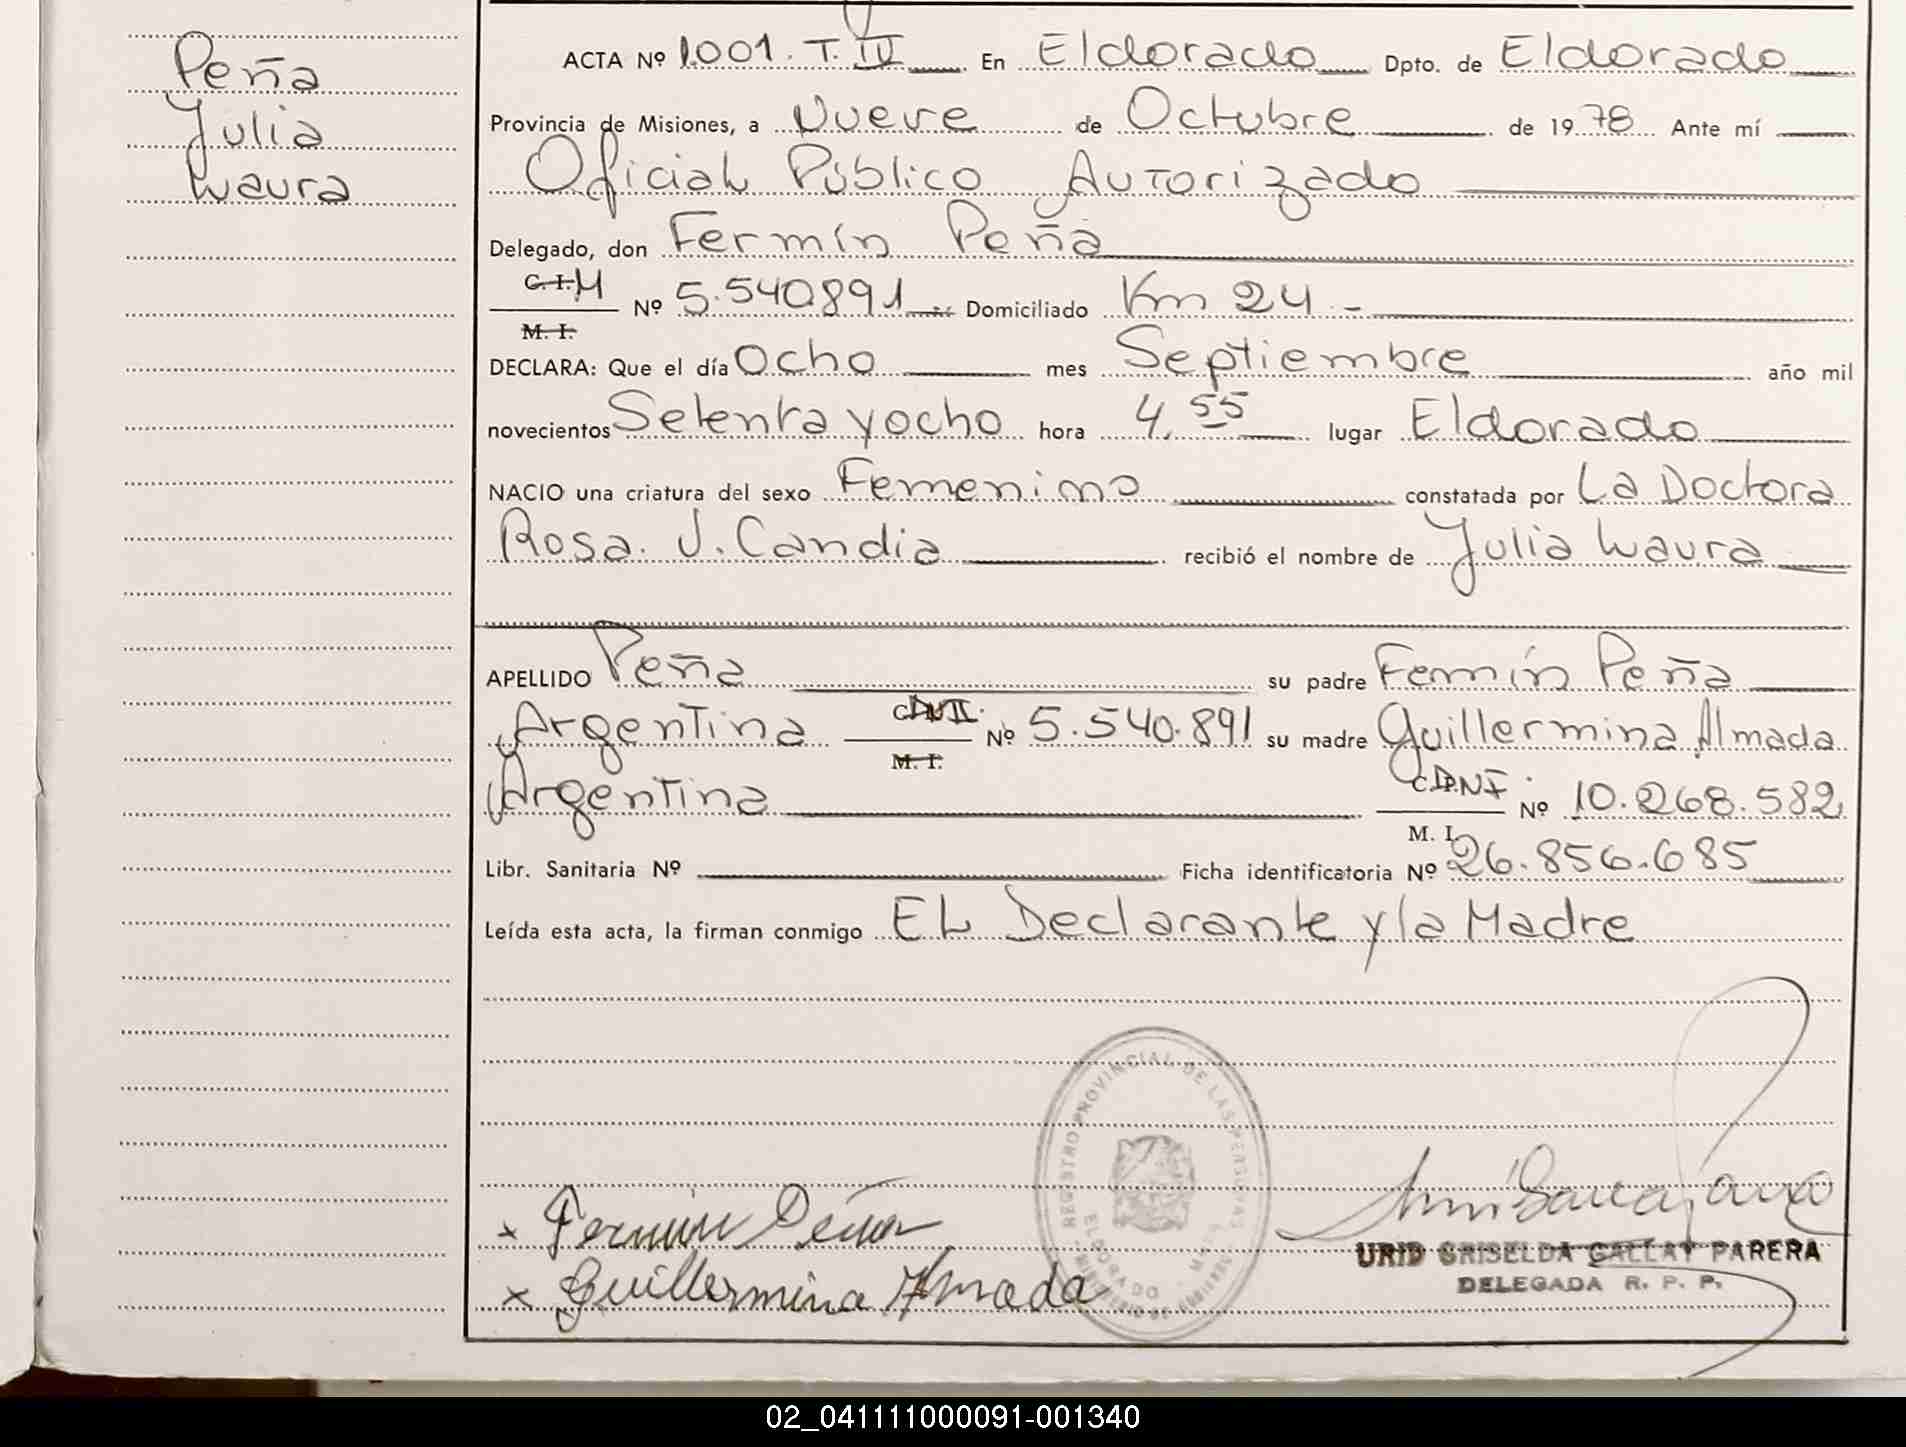 Peña
Julia
Laura
ACTA Nº 1.001. T. IV En Eldorado Dpto. de Eldorado
Provincia de Misiones, a Nueve de Octubre de 1978 Ante mí
Oficial Público Autorizado
Delegado, don Fermín Peña
C. I. M
Nº 5.540.891 Domiciliado Km 24 -
M. I.
DECLARA: Que el día Ocho mes Septiembre año mil
novecientos Setenta y ocho hora 4,55 lugar Eldorado
NACIO una criatura del sexo Femenino constatada por La Doctora
Rosa. J. Candia recibió el nombre de Julia Laura
APELLIDO Peña su padre Fermín Peña
Argentina Nº 5.540.891 su madre Guillermina Almada
M. I.
Argentina DNI Nº 10.268.582
M. I.
Libr. Sanitaria Nº Ficha identificatoria Nº 26.856.685
Leída esta acta, la firman conmigo EL Declarante y la Madre
REGISTRO PROVINCIAL DE LAS PERSONAS
ELDORADO
x Fermin Peña
URID GRISELDA GALLAY PARERA
DELEGADA R. P. P.
x Guillermina Almada
02_041111000091-001340